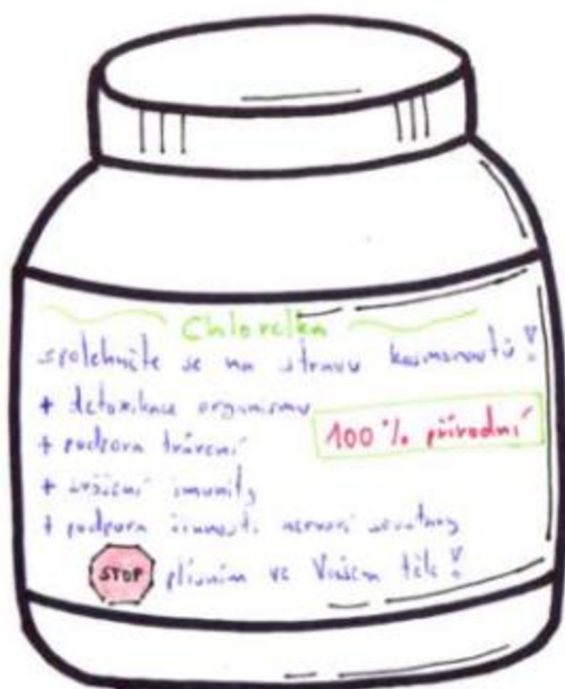 Chlorelka
spolehněte se na stravu kosmonautů!
+ detoxikace organismu
+ podpora trávení
100% přírodní
+ zvýšení imunity
+ podpora činnosti nervové soustavy
STOP plísním ve Vašem těle!